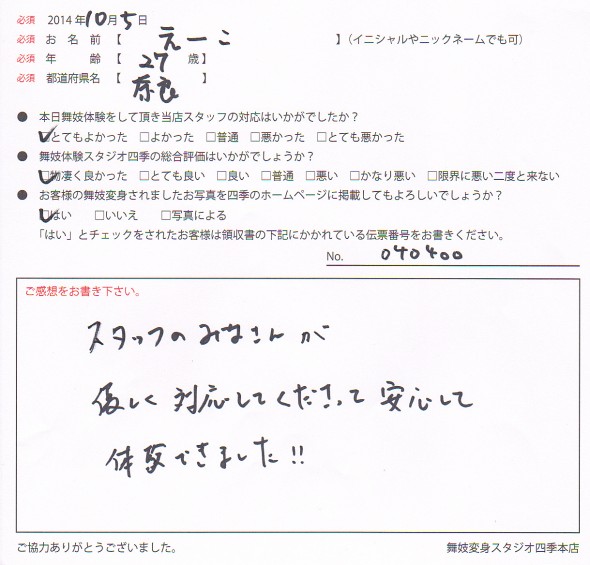 必須 2014年10月5日
必須 お名前【 えーこ 】(イニシャルやニックネームでも可)
必須 年齢【 27 歳】
必須 都道府県名【 奈良 】
● 本日舞妓体験をして頂き当店スタッフの対応はいかがでしたか?
☑とてもよかった □よかった □普通 □悪かった □とても悪かった
● 舞妓体験スタジオ四季の総合評価はいかがでしょうか?
☑物凄く良かった □とても良い □良い □普通 □悪い □かなり悪い □限界に悪い二度と来ない
● お客様の舞妓変身されましたお写真を四季のホームページに掲載してもよろしいでしょうか?
☑はい □いいえ □写真による
「はい」とチェックをされたお客様は領収書の下記にかかれている伝票番号をお書きください。
No. 040400
ご感想をお書き下さい。
スタッフのみなさんが
優しく対応してくださって安心して
体験できました!!
ご協力ありがとうございました。 舞妓変身スタジオ四季本店